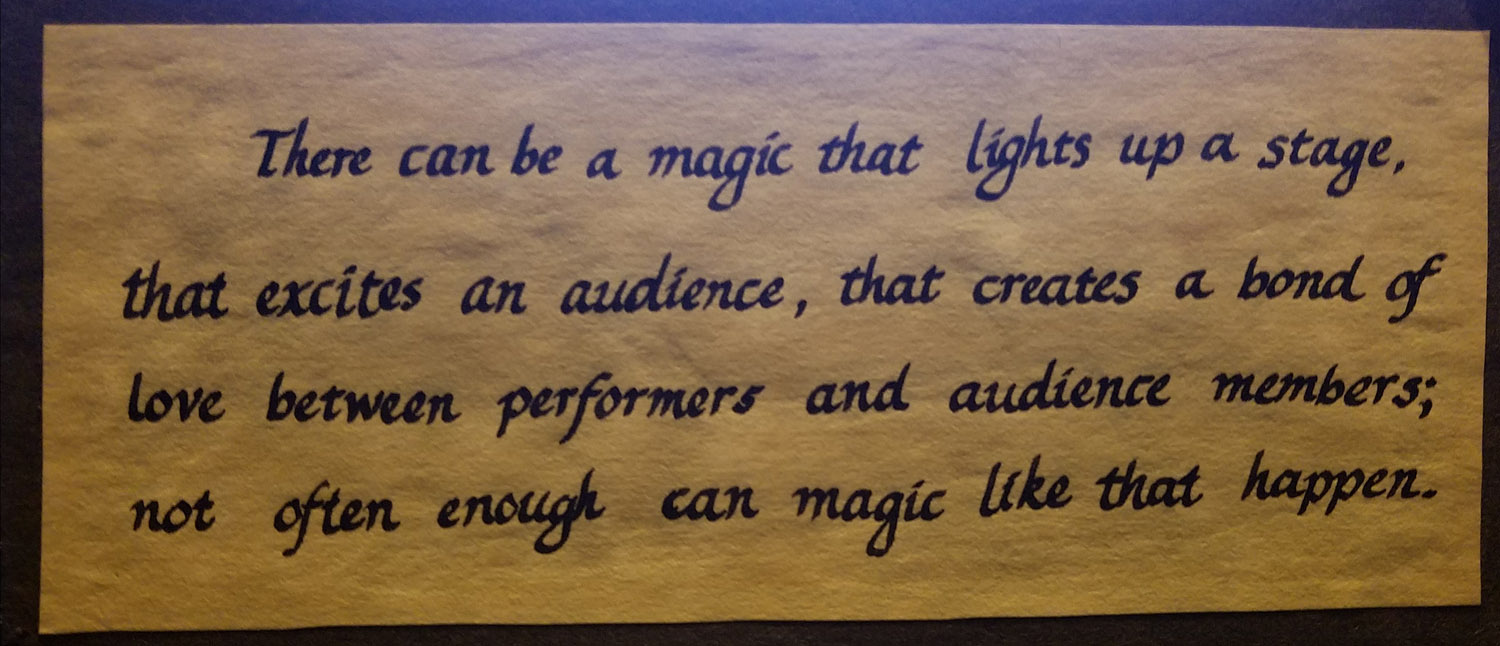 There can be a magic that lights up a stage,
that excites an audience, that creates a bond of
love between performers and audience members;
not often enough can magic like that happen.